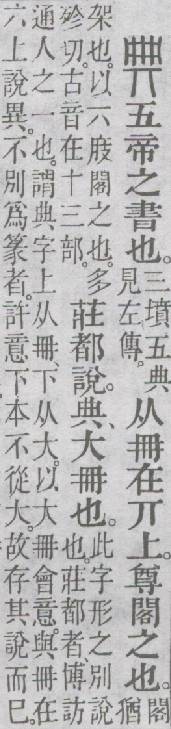 典五帝之書也。三墳五典見左傳。从冊在丌上。尊閣之也。閣猶
架也。以六庋閣之也。多殄切。古音在十三部。莊都說。典、大冊也。此字形之別說也。莊都者、博訪
通人之一也。謂典字上从冊、下从大。以大冊會意。與冊在六上說異。不別爲篆者。許意下本不從大。故存其說而巳。